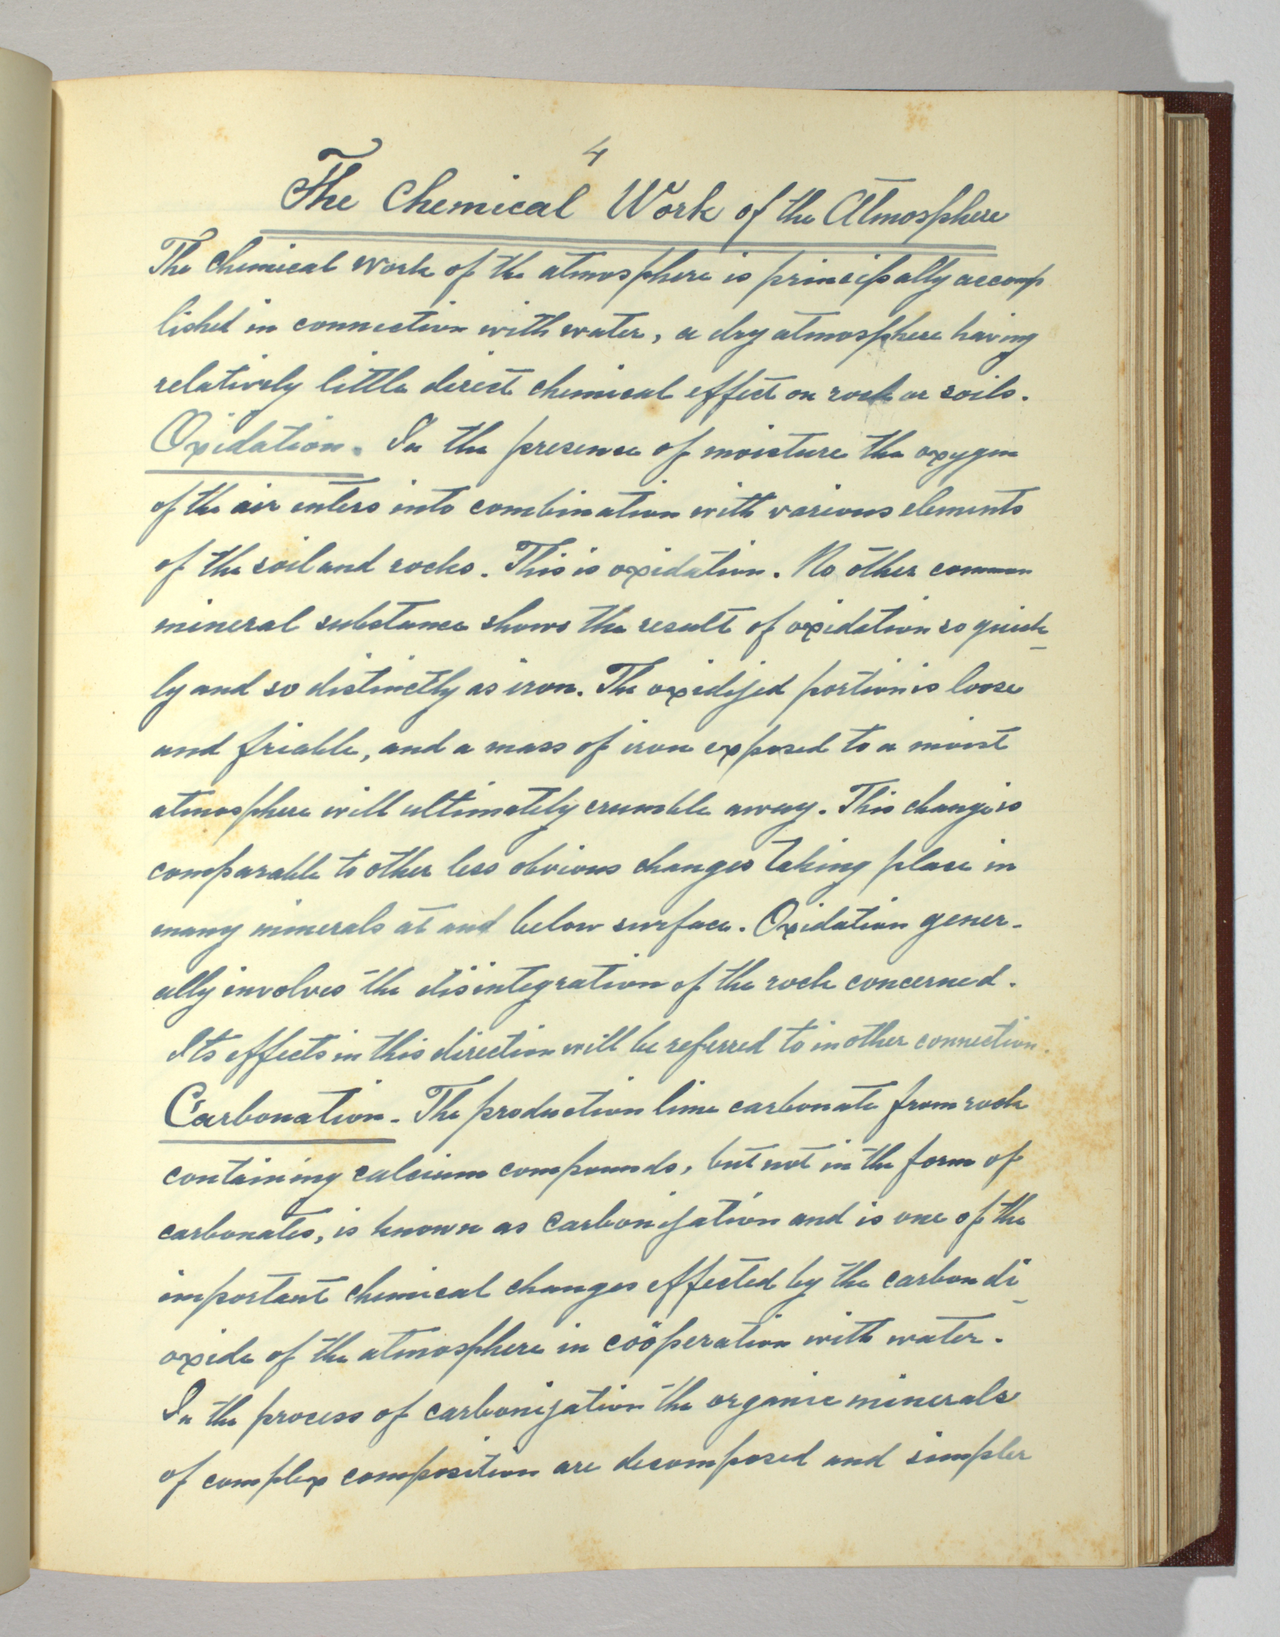 4
The Chemical Work of the Atmosphere
The chemical work of the atmosphere is principally accomp
lished in connection with water, a dry atmosphere having
relatively little direct chemical effect on rock or soils.
Oxidation. In the presence of moisture the oxygen
of the air enters into combination with various elements
of the soil and rocks. This is oxidation. No other common
mineral substance shows the result of oxidation so quick-
ly and so distinctly as iron. The oxidized portion is loose
and friable, and a mass of iron exposed to a moist
atmosphere will ultimately crumble away. This change is
comparable to other less obvious changes taking place in
many minerals at and below surface. Oxidation gener-
ally involves the disintegration of the rock concerned.
Its effects in this direction will be referred to in other connection.
Carbonation - The production lime carbonate from rock
containing calcium compounds, but not in the form of
carbonates, is known as carbonization and is one of the
important chemical changes effected by the carbon di-
oxide of the atmosphere in coöperation with water.
In the process of carbonization the organic minerals
of complex composition are decomposed and simpler